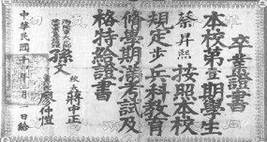 卒業證書
本校第壹期學生
蔡昇熙按照本校
規定步兵科教育
修學期滿考試及
格特給證書
孫文
校長 蔣中正
廖仲愷
中華民國十 年 月 日給